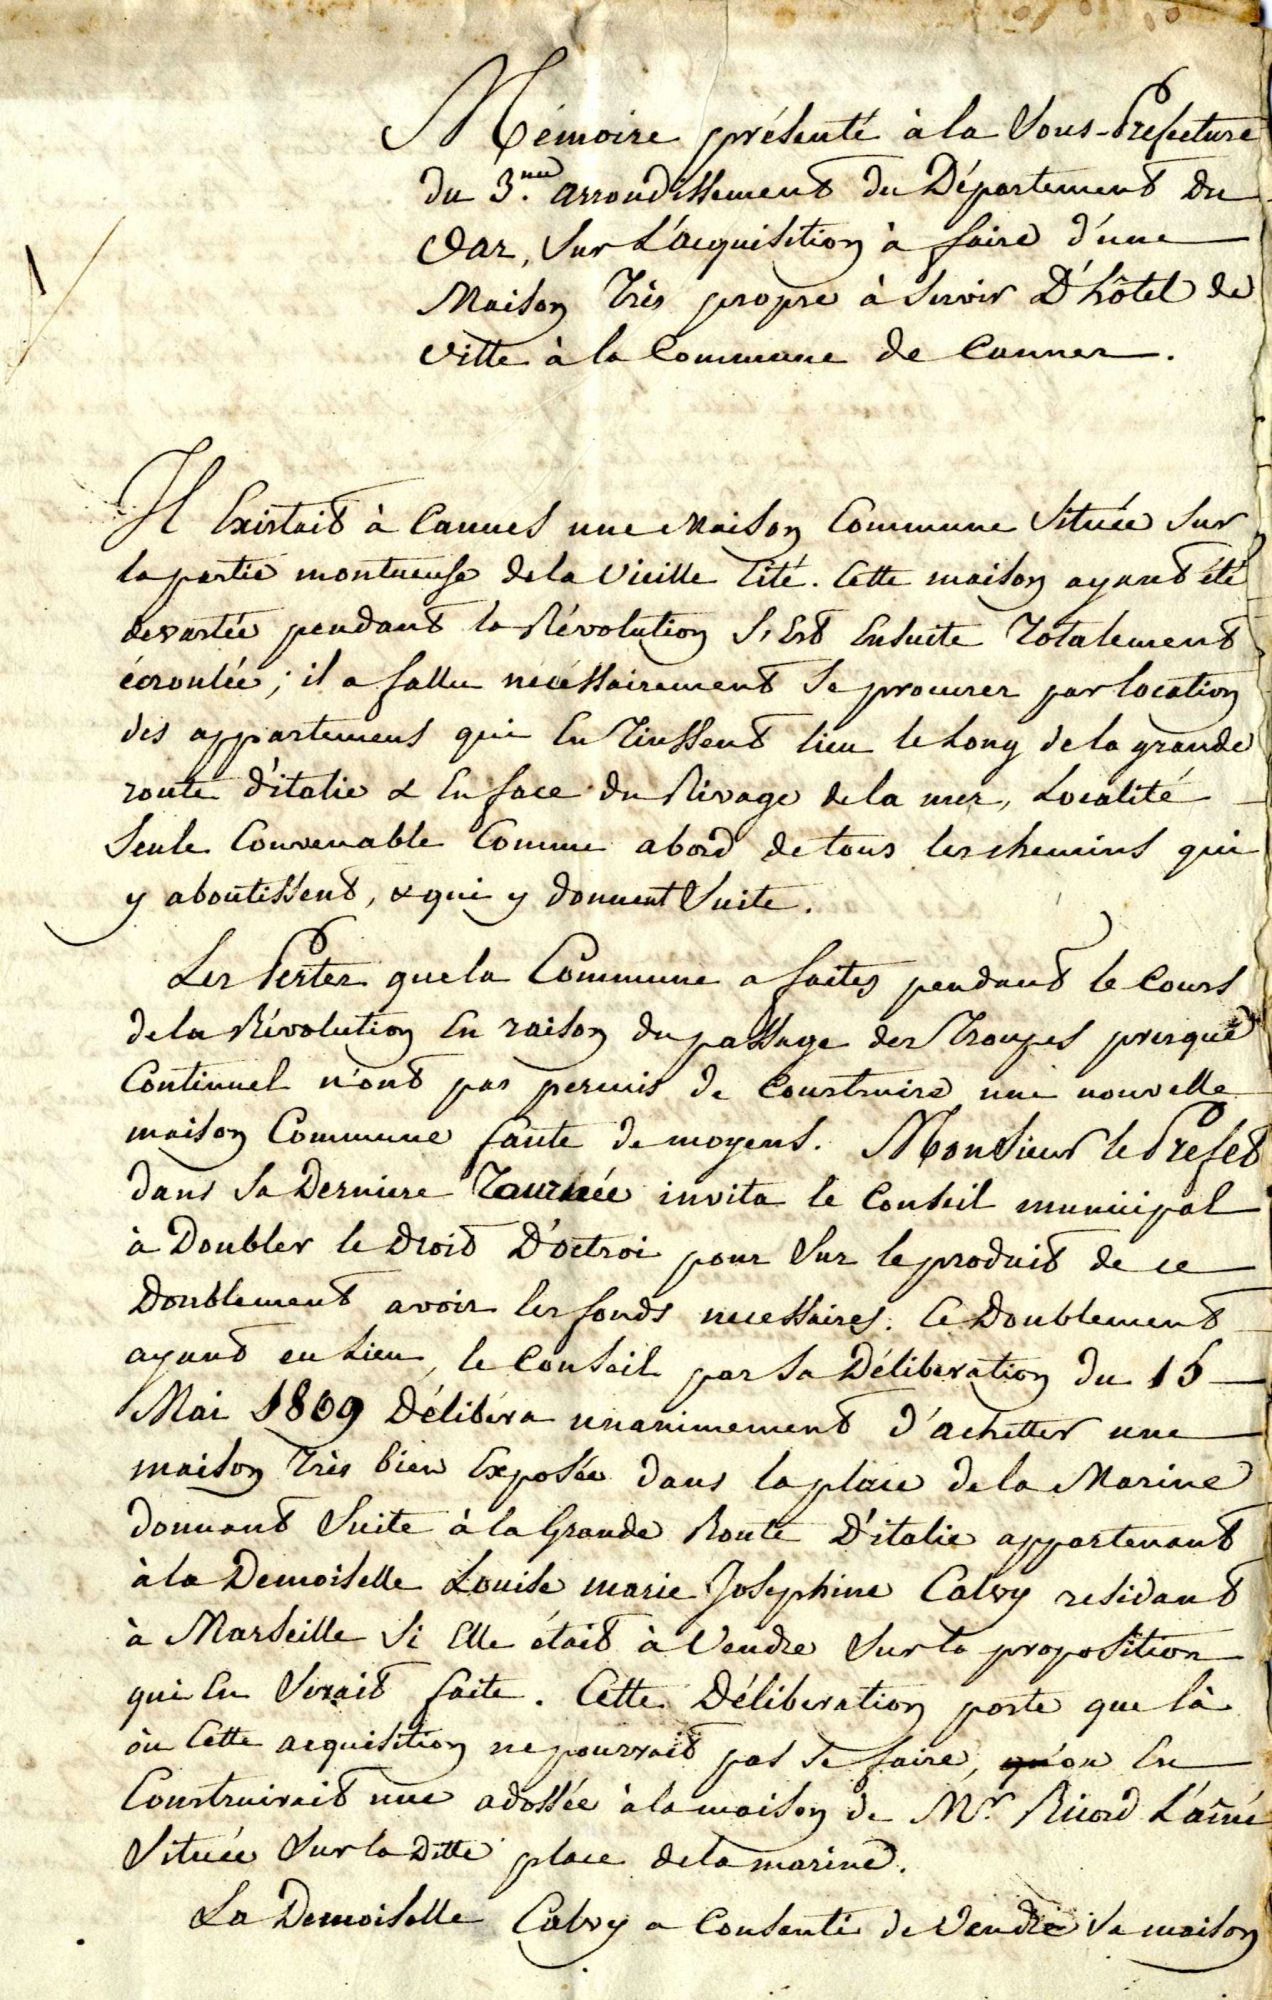 Mémoire présenté à la Sous-Prefecture
du 3.me arrondissement du Département du
Var, Sur L'acquisition à faire d'une
Maison Très propre à Servir D'hôtel de
Ville à la Commune de Cannes.
Il Existait à Cannes une Maison Commune Située Sur
la partie montueuse de la Vieille Cité. Cette maison ayant été
devastée pendant la Révolution S'Est Ensuite Totalement
écroulée; il a fallu nécéssairement Se procurer par location
des appartemens qui En Tinssent lieu le Long de la grande
route d'italie & En face du Rivage de la mer, Localité
Seule Convenable Comme abord de tous les chemins qui
y aboutissent, & qui y donnent Suite.
Les Pertes que la Commune a faites pendant le Cours
de la Révolution En raison du passage des Troupes presque
Continuel n'ont pas permis de Construire une nouvelle
maison Commune faute de moyens. Monsieur le Prefet
dans Sa Derniere Tournée invita le Conseil municipal
à Doubler le Droit D'octroi pour Sur le produit de ce
Doublement avoir les fonds necessaires. Ce Doublement
ayant eu Lieu, le Conseil par Sa Déliberation du 15
Mai 1809 Délibéra unanimement d'achetter une
maison Très bien Exposée dans la place de la Marine
donnant Suite à la Grande Route D'italie appartenant
à la Demoiselle Louise marie Josephine Calvy residant
à Marseille Si Elle était à Vendre Sur la proposition
qui En Serait faite. Cette Déliberation porte que là
où Cette acquisition ne pourrait pas Se faire, qu'on En
Construirait une adossée à la maison de Mr. Ricord L'aîné
Située Sur la Ditte place de la marine.
La Demoiselle Calvy a Consenti de Vendre Sa maison